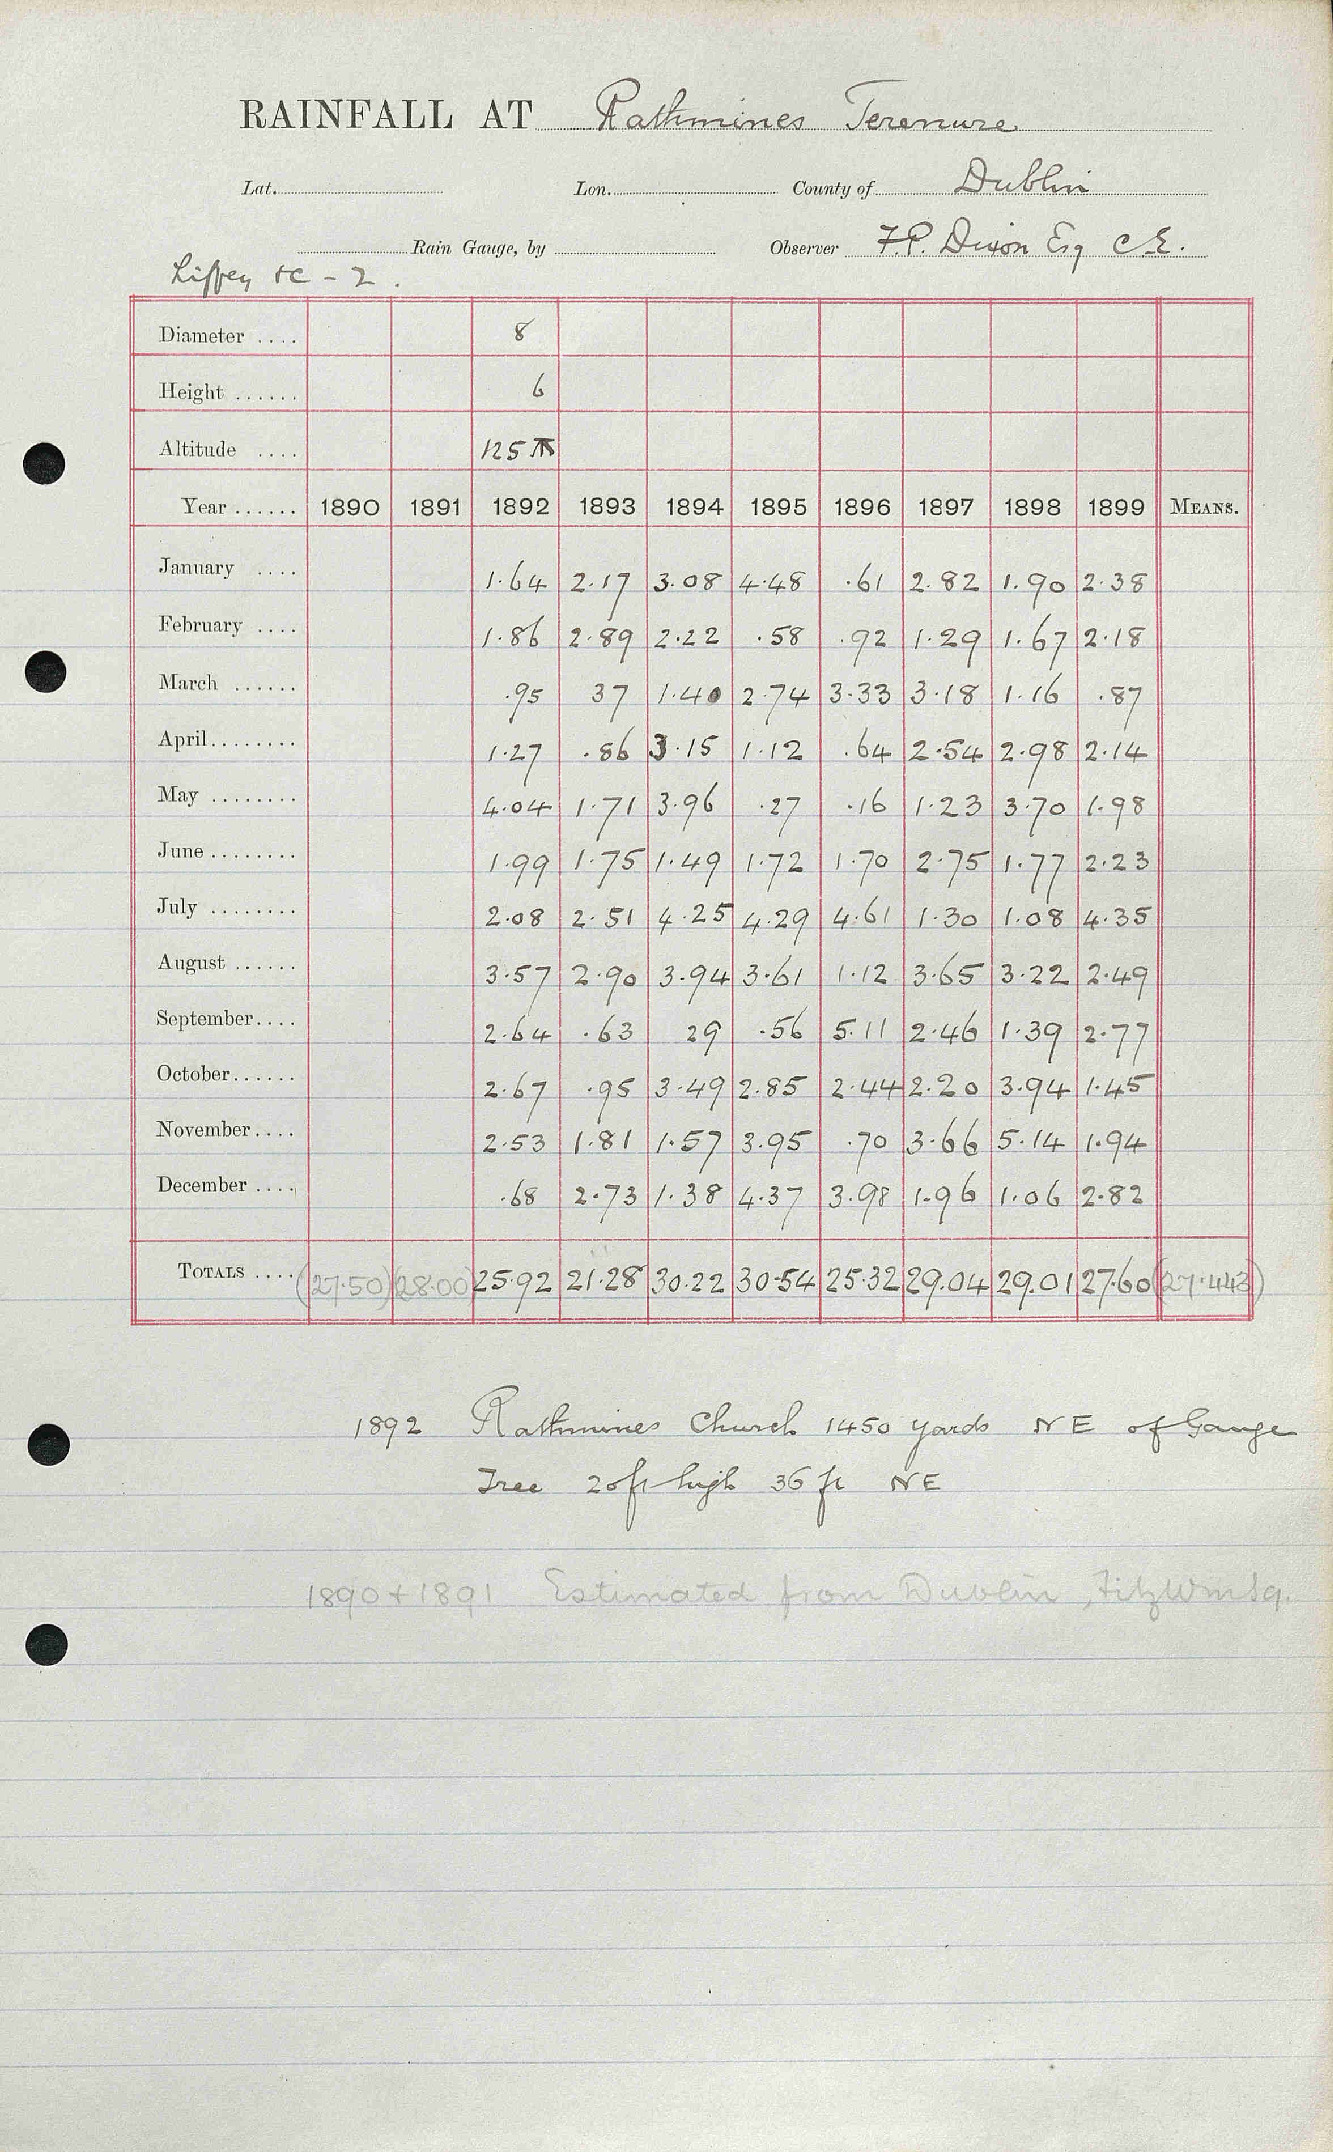 RAINFALL AT Rathmines Terenure
Lat. Lon. County of Dublin
Rain Gauge, by Observer F.P. Dixon Esq C.E.
Liffey &c - 2.
Diameter .... 8
Height ...... 6
Altitude .... 125
Year ...... 1890 1891 1892 1893 1894 1895 1896 1897 1898 1899 MEANS.
January .... 1.64 2.17 3.08 4.48 .61 2.82 1.90 2.38
February .... 1.86 2.89 2.22 .58 .92 1.29 1.67 2.18
March ...... .95 37 1.40 2.74 3.33 3.18 1.16 .87
April........ 1.27 .86 3.15 1.12 .64 2.54 2.98 2.14
May ........ 4.04 1.71 3.96 .27 .16 1.23 3.70 1.98
June ........ 1.99 1.75 1.49 1.72 1.70 2.75 1.77 2.23
July ........ 2.08 2.51 4.25 4.29 4.61 1.30 1.08 4.35
August ...... 3.57 2.90 3.94 3.61 1.12 3.65 3.22 2.49
September.... 2.64 .63 29 .56 5.11 2.46 1.39 2.77
October...... 2.67 .95 3.49 2.85 2.44 2.20 3.94 1.45
November.... 2.53 1.81 1.57 3.95 .70 3.66 5.14 1.94
December .... .68 2.73 1.38 4.37 3.98 1.96 1.06 2.82
TOTALS .... (27.50) (28.00) 25.92 21.28 30.22 30.54 25.32 29.04 29.01 27.60 (27.443)
1892 Rathmines Church 1450 yards NE of Gauge
Tree 20ft high 36 ft NE
1890 + 1891 Estimated from Dublin, FitzWmSq.